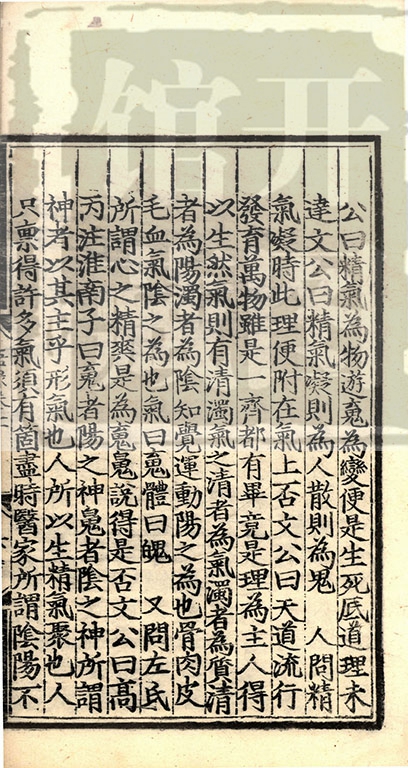 公曰精氣為物遊䰟為變便是生死底道理未
達文公曰精氣凝則為人散則為鬼　人問精
氣凝時此理便附在氣上否文公曰天道流行
發育萬物雖是一齊都有畢竟是理為主人得
以生然氣則有清濁氣之清者為氣濁者為質清
者為陽濁者為陰知覺運動陽之為也骨肉皮
毛血氣陰之為也氣曰䰟體曰魄　又問左氏
所謂心之精爽是為䰟䰟說得是否文公曰高
丙注淮南子曰䰟者陽之神䰟者陰之神所謂
神者以其主乎形氣也人所以生精氣聚也人
只禀得許多氣須有箇盡時醫家所謂陰陽不
開
館